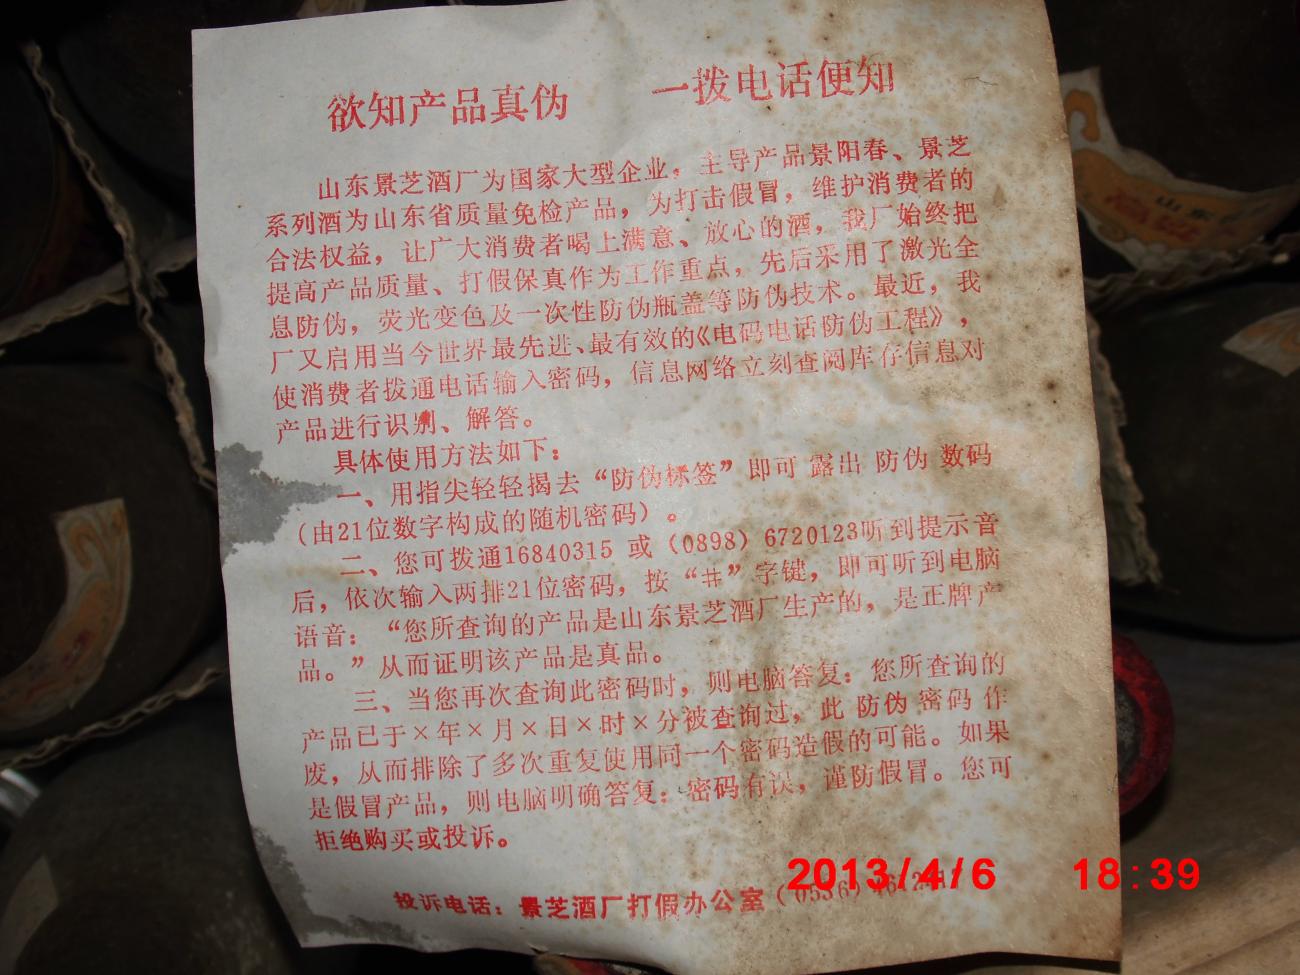 欲知产品真伪 一拨电话便知
山东景芝酒厂为国家大型企业，主导产品景阳春、景芝
系列酒为山东省质量免检产品，为打击假冒，维护消费者的
合法权益，让广大消费者喝上满意、放心的酒，我厂始终把
提高产品质量、打假保真作为工作重点，先后采用了激光全
息防伪，荧光变色及一次性防伪瓶盖等防伪技术。最近，我
厂又启用当今世界最先进、最有效的《电码电话防伪工程》，
使消费者拨通电话输入密码，信息网络立刻查阅库存信息对
产品进行识别、解答。
具体使用方法如下：
一、用指尖轻轻揭去“防伪标签”即可 露出 防伪 数码
（由21位数字构成的随机密码）。
二、您可拨通16840315 或（0898）6720123听到提示音
后，依次输入两排21位密码，按“#”字键，即可听到电脑
语音：“您所查询的产品是山东景芝酒厂生产的，是正牌产
品。”从而证明该产品是真品。
三、当您再次查询此密码时，则电脑答复：您所查询的
产品已于×年×月×日×时×分被查询过，此 防伪 密码 作
废，从而排除了多次重复使用同一个密码造假的可能。如果
是假冒产品，则电脑明确答复：密码有误，谨防假冒。您可
拒绝购买或投诉。
投诉电话：景芝酒厂打假办公室（0536）
2013/4/6 18:39
山东